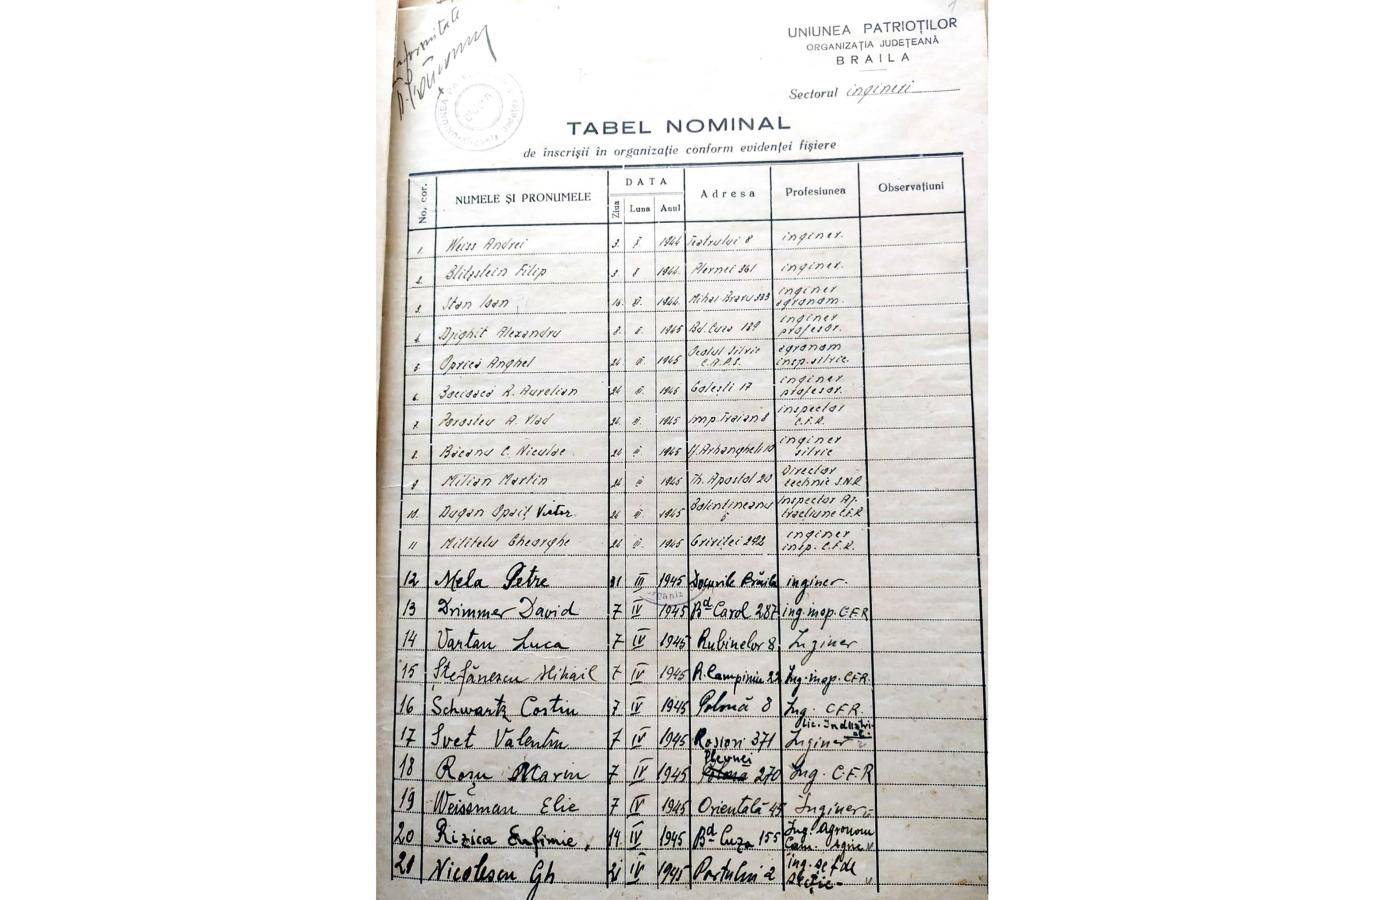 UNIUNEA PATRIOȚILOR
ORGANIZAȚIA JUDEȚEANĂ
BRAILA
Sectorul ingineri
TABEL NOMINAL
de înscrișii în organizație conform evidenței fișiere
No. cor. NUMELE ȘI PRONUMELE DATA Adresa Profesiunea Observațiuni
Ziua Luna Anul
1. Weiss Andrei 3. X 1944 Teatrului 8 inginer.
2. Blitzstein Filip 3. X 1944. Plevnei 361 inginer.
3. Stan Ioan 16. XI. 1944. Mihai Bravu 333 inginer agronom.
4. Djighit Alexandru 8. II. 1945 Bd. Cuza 189 inginer profesor.
5 Oprica Anghel 24 III. 1945 Ocolul Silvic C.A.P.S. agronom insp. silvic.
6 R. Aurelian 24 III. 1945 Golești 17 inginer profesor.
7. A. Vlad 24 III. 1945 Imp. Traian 8 inspector C.F.R.
8. Băceanu C. Niculae 24 III 1945 Arhangheli 10 inginer silvic
9 Milian Martin 24 III 1945 Th. Apostol 20 Director technic S.N.R.
10. Dugan Opaiț Victor 24 III. 1945 Bolintineanu 5 inspector Aj. tracțiune C.F.R.
11 Militelu Gheorghe 24 III. 1945 Griviței 292 inginer insp. C.F.R.
12 Mela Petre 31 III 1945 Docurile Brăila inginer.
13 Drimmer David 7 IV 1945 Bd Carol 287 ing. insp. C.F.R
14 Vartan Luca 7 IV 1945 Rubinelor 8 Inginer
15 Ștefănescu Mihail 7 IV 1945 R. Campiniu 22 Ing. insp. C.F.R.
16 Schwartz Costin 7 IV 1945 Polonă 8 Ing. C.F.R.
17 Svet Valentin 7 IV 1945 Roșiori 371 Lic. Industrial. Inginer
18 Roșu Marin 7 IV 1945 Plevnei 270 Ing. C.F.R
19 Weissman Elie 7 IV 1945 Orientală 45 Inginer
20 Rizica Eufimie, 14. IV 1945 Bd Cuza 155 Ing. Agronom Cam. Agric. v
21 Nicolescu Gh 21 IV 1945 Portului 2 ing. șef de secție v